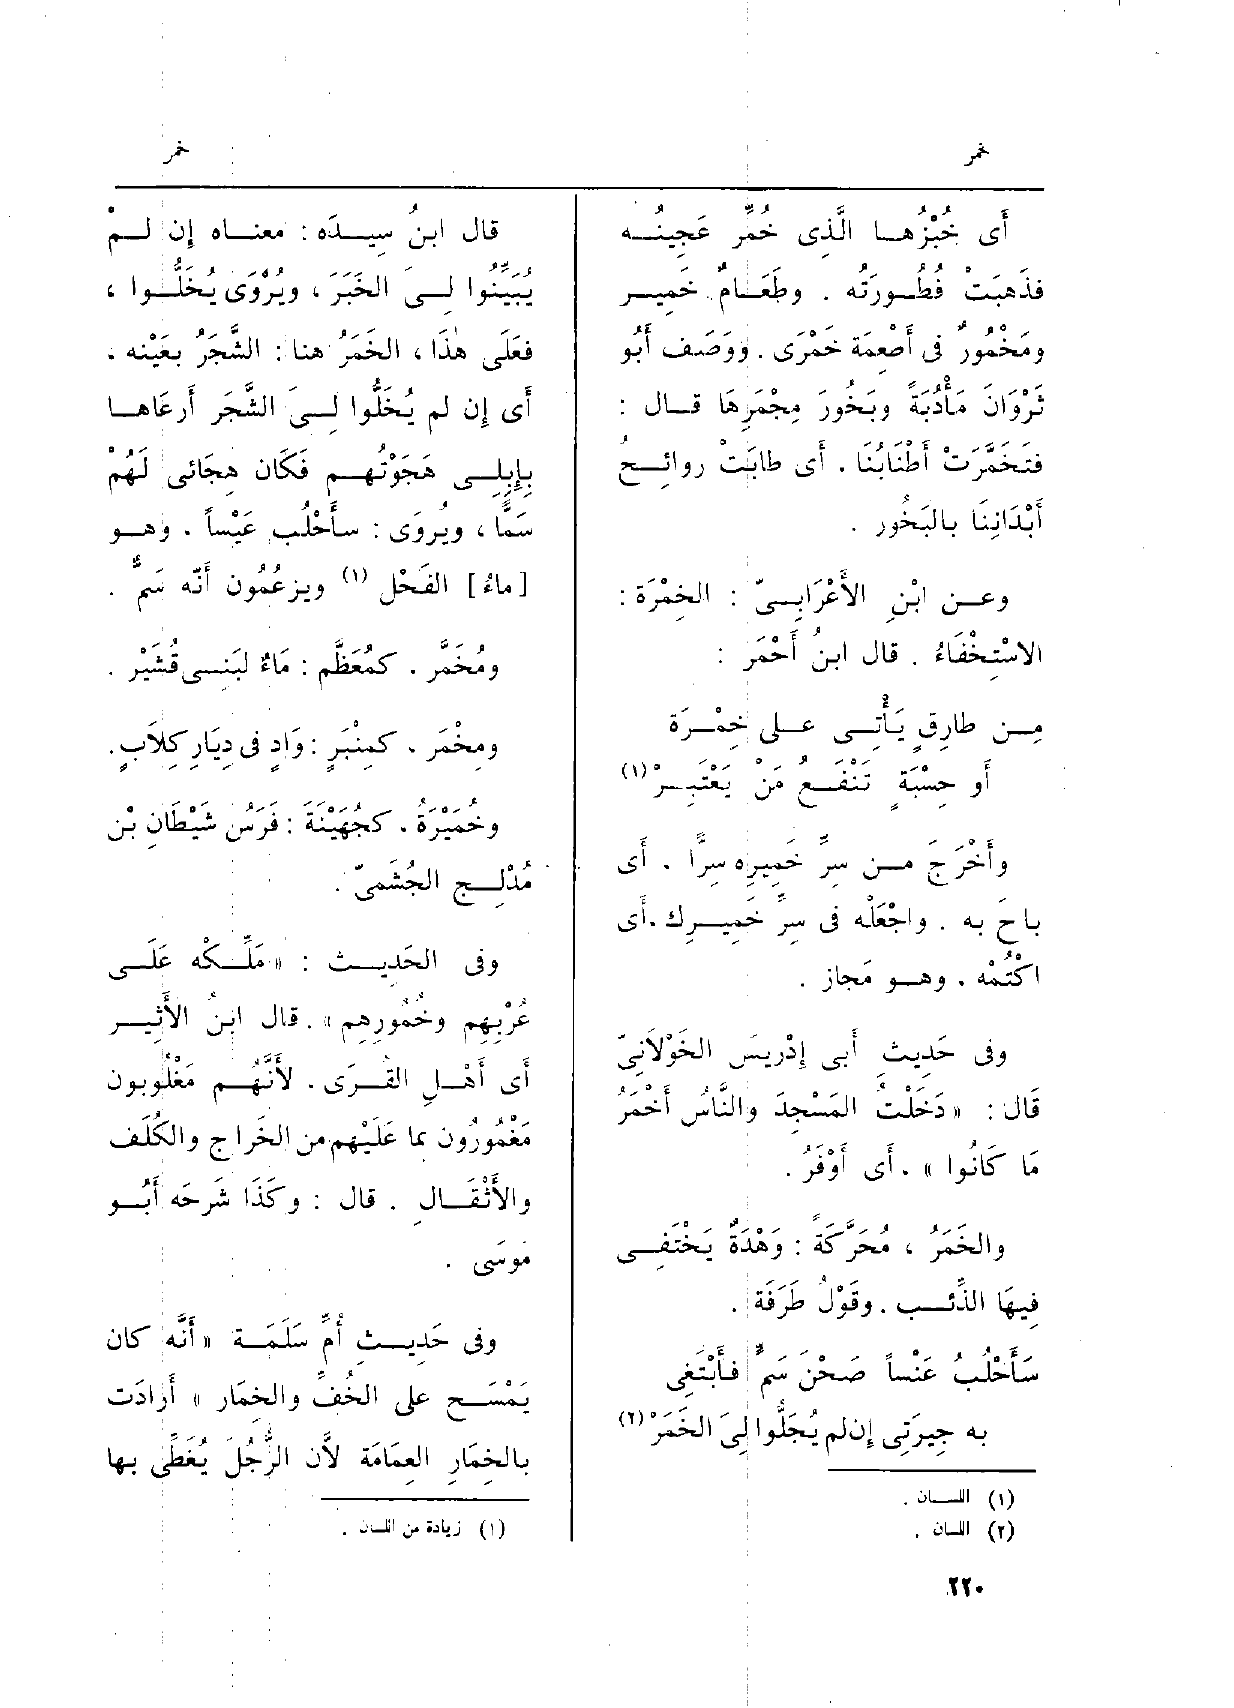 خمر
خمر
أَى خُبْزُهــا الَّذِى خُمِّرَ عَجِينُــه
فذَهبَتْ فُطُــورَتُه . وطَعَــامٌ خَمِيــر
ومَخْمُورٌ فى أَطعِمة خَمْرَى . ووَصَف أَبُو
ثَرْوَانَ مَأْدُبَةً وبَخُورَ مِجْمَرِهَا قــال :
فتَخَمَّرَتْ أَطْنَابُنَا . أَى طابَتْ روائــحُ
أَبْدَانِنَا بالبَخُور .
وعــن ابْنِ الأَعْرَابــىّ : الخِمْرَة :
الاسْتِخْفَاءُ . قال ابنُ أَحْمَر :
مِــن طارِقٍ يَأْتِــى عــلى خِمْــرَة
أَو حِسْبَةٍ تَنْفَــعُ مَنْ يَعْتَبِــرْ (١)
وأَخْرَج مــن سِرِّ خَمِيرِه سِرًّا . أَى
باحَ به . واجْعَلْه فى سِرِّ خَمِيــرِك . أَى
اكْتُمْه . وهــو مَجاز .
وفى حَدِيثِ أَبى إِدْرِيسَ الخَوْلَانِىّ
قَال : « دَخَلْتُ المَسْجِدَ والنَّاسُ أَخْمَرُ
مَا كَانُوا » . أَى أَوْفَرُ .
والخَمَرُ ، مُحَرَّكَةً : وَهْدَةٌ يَخْتَفِــى
فِيهَا الذِّئــب . وقَوْلُ طَرَفَة .
سَأَحْلُبُ عَنْساً صَحْنَ سَمٍّ فأَبْتَغِى
به جِيرَتِى إِن لم يُجَلُّوا لِىَ الخَمَرْ (٢)
(١) اللســان .
(٢) اللسان .
قال ابنُ سِيــدَه : معنــاه إِن لــمْ
يُبَيِّنُوا لِــىَ الخَبَرَ ، ويُرْوَى يُخَلُّــوا ،
فعَلَى هٰذَا ، الخَمَرُ هنا : الشَّجَرُ بعَيْنِه ،
أَى إِن لم يُخَلُّوا لِــىَ الشَّجَر أَرعَاهــا
بإِبِلِــى هَجَوْتُهــم فَكَان هِجَائى لَهُمْ
سَمًّا ، ويُروَى : سأَحْلُب عَيْساً . وهــو
[ماءُ] الفَحْل (١) ويزعُمُون أَنّه سَمٌّ .
ومُخَمَّر . كمُعَظَّم : مَاءٌ لبَنِــى قُشَيْر .
ومِخْمَر . كمِنْبَرٍ : وَادٍ فى دِيَارِ كِلَابٍ .
وخُمَيْرَةُ . كجُهَيْنَة : فَرَسُ شَيْطَانِ بْنِ
مُدْلِــجٍ الجُشَمِىّ .
وفى الحَدِيــث : « مَلِّــكْه عَلَــى
عُرْبِهِم وخُمُورِهِم » . قال ابنُ الأَثِيــر
أَى أَهْــلِ القُــرَى . لأَنَّهُــم مَغْلُوبون
مَغْمُورُون بما عَلَيْهِم من الخَراج والكُلَف
والأَثْقَــالِ . قال : وكَذَا شَرحَه أَبُــو
مُوسَى .
وفى حَدِيــثِ أُمِّ سَلَمَــة « أَنَّه كان
يَمْسَــح على الخُفِّ والخِمَار » أَرادَت
بالخِمَارِ العِمَامَةَ لأَن الرَّجُلَ يُغَطِّى بها
(١) زيادة من اللسان .
٢٢٠